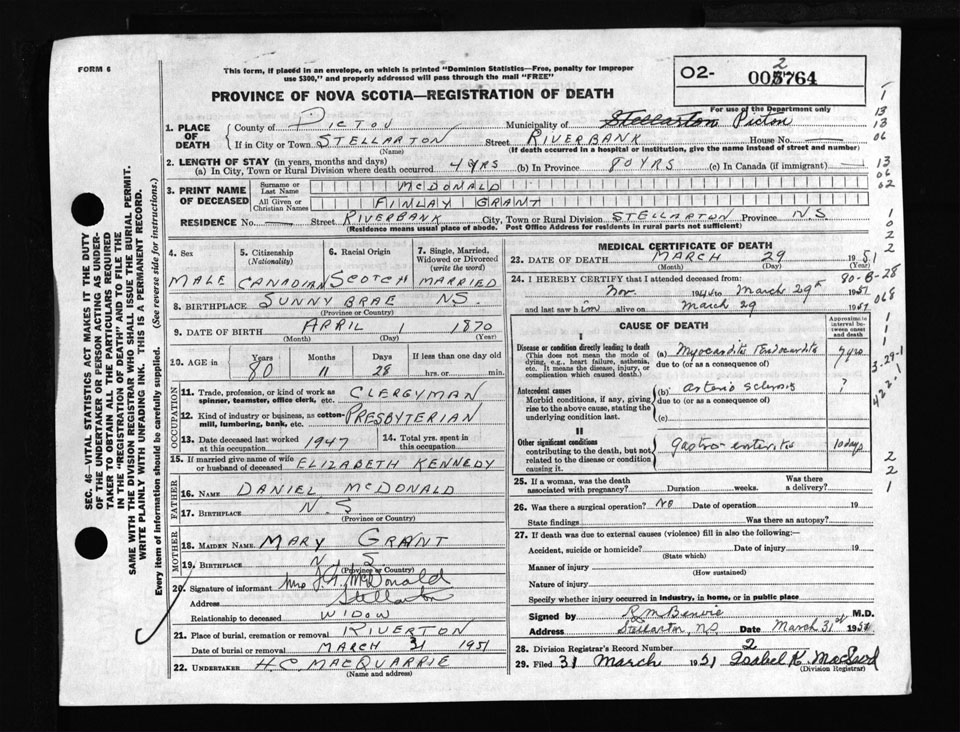 FORM 6
This form, if placed in an envelope, on which is printed "Dominion Statistics—Free, penalty for improper
use $300," and properly addressed will pass through the mail "FREE"
O2- 2
005764
PROVINCE OF NOVA SCOTIA—REGISTRATION OF DEATH
For use of the Department only
1. PLACE OF DEATH
County of PICTOU Municipality of Stellarton Picton
If in City or Town STELLARTON Street RIVERBANK House No.
(Name) (If death occurred in a hospital or institution, give the name instead of street and number)
2. LENGTH OF STAY (in years, months and days)
(a) In City, Town or Rural Division where death occurred 4 YRS (b) In Province 80 YRS (c) In Canada (if immigrant)
3. PRINT NAME OF DECEASED
Surname or Last Name MCDONALD
All Given or Christian Names FINLAY GRANT
RESIDENCE No. Street RIVERBANK City, Town or Rural Division STELLARTON Province NS
(Residence means usual place of abode. Post Office Address for residents in rural parts not sufficient)
4. Sex
MALE
5. Citizenship
(Nationality)
CANADIAN
6. Racial Origin
SCOTCH
7. Single, Married, Widowed or Divorced
(write the word)
MARRIED
8. BIRTHPLACE SUNNY BRAE N.S.
(Province or Country)
9. DATE OF BIRTH APRIL 1 1870
(Month) (Day) (Year)
10. AGE in
Years Months Days If less than one day old
80 11 28 hrs. or min.
OCCUPATION
11. Trade, profession, or kind of work as
spinner, teamster, office clerk, etc. CLERGYMAN
12. Kind of industry or business, as cotton-
mill, lumbering, bank, etc. PRESBYTERIAN
13. Date deceased last worked
at this occupation 1947
14. Total yrs. spent in
this occupation
15. If married give name of wife
or husband of deceased ELIZABETH KENNEDY
FATHER
16. NAME DANIEL MCDONALD
17. BIRTHPLACE N.S.
(Province or Country)
MOTHER
18. MAIDEN NAME MARY GRANT
19. BIRTHPLACE N S
(Province or Country)
20. Signature of informant Mrs McDonald
Address Stellarton
Relationship to deceased WIDOW
21. Place of burial, cremation or removal RIVERTON
Date of burial or removal MARCH 31 1951
22. UNDERTAKER H.C. MACQUARRIE
(Name and address)
MEDICAL CERTIFICATE OF DEATH
23. DATE OF DEATH MARCH 29 1951
(Month) (Day) (Year)
24. I HEREBY CERTIFY that I attended deceased from:
Nov. to March 29th 1951
and last saw him alive on March 29 1951
CAUSE OF DEATH
Approximate interval between onset and death
I
Disease or condition directly leading to death
(This does not mean the mode of dying, e.g., heart failure, asthenia, etc. It means the disease, injury, or complication which caused death.)
(a) Myocarditis Endocarditis
due to (or as a consequence of)
Antecedent causes
Morbid conditions, if any, giving rise to the above cause, stating the underlying condition last.
(b) arterio sclerosis ?
due to (or as a consequence of)
(c)
II
Other significant conditions
contributing to the death, but not related to the disease or condition causing it.
Gastro-enteritis 10 days
25. If a woman, was the death
associated with pregnancy? Duration weeks. Was there a delivery?
26. Was there a surgical operation? NO Date of operation 19
State findings Was there an autopsy?
27. If death was due to external causes (violence) fill in also the following:—
Accident, suicide or homicide? Date of injury 19
(State which)
Manner of injury
(How sustained)
Nature of injury
Specify whether injury occurred in industry, in home, or in public place
Signed by R M Benvie M.D.
Address Stellarton, NS Date March 31st 1951
28. Division Registrar's Record Number 2
29. Filed 31 March 1951 Isabel K. MacLeod
(Division Registrar)
SEC. 46—VITAL STATISTICS ACT MAKES IT THE DUTY
OF THE UNDERTAKER OR PERSON ACTING AS UNDER-
TAKER TO OBTAIN ALL THE PARTICULARS REQUIRED
IN THE "REGISTRATION OF DEATH" AND TO FILE THE
SAME WITH THE DIVISION REGISTRAR WHO SHALL ISSUE THE BURIAL PERMIT.
WRITE PLAINLY WITH UNFADING INK. THIS IS A PERMANENT RECORD.
Every item of information should be carefully supplied. (See reverse side for instructions.)
1
13
13
06
13
06
02
1
0
2
2
80-8-28
068
1
1
1
3-29-1
422-1
2
2
1